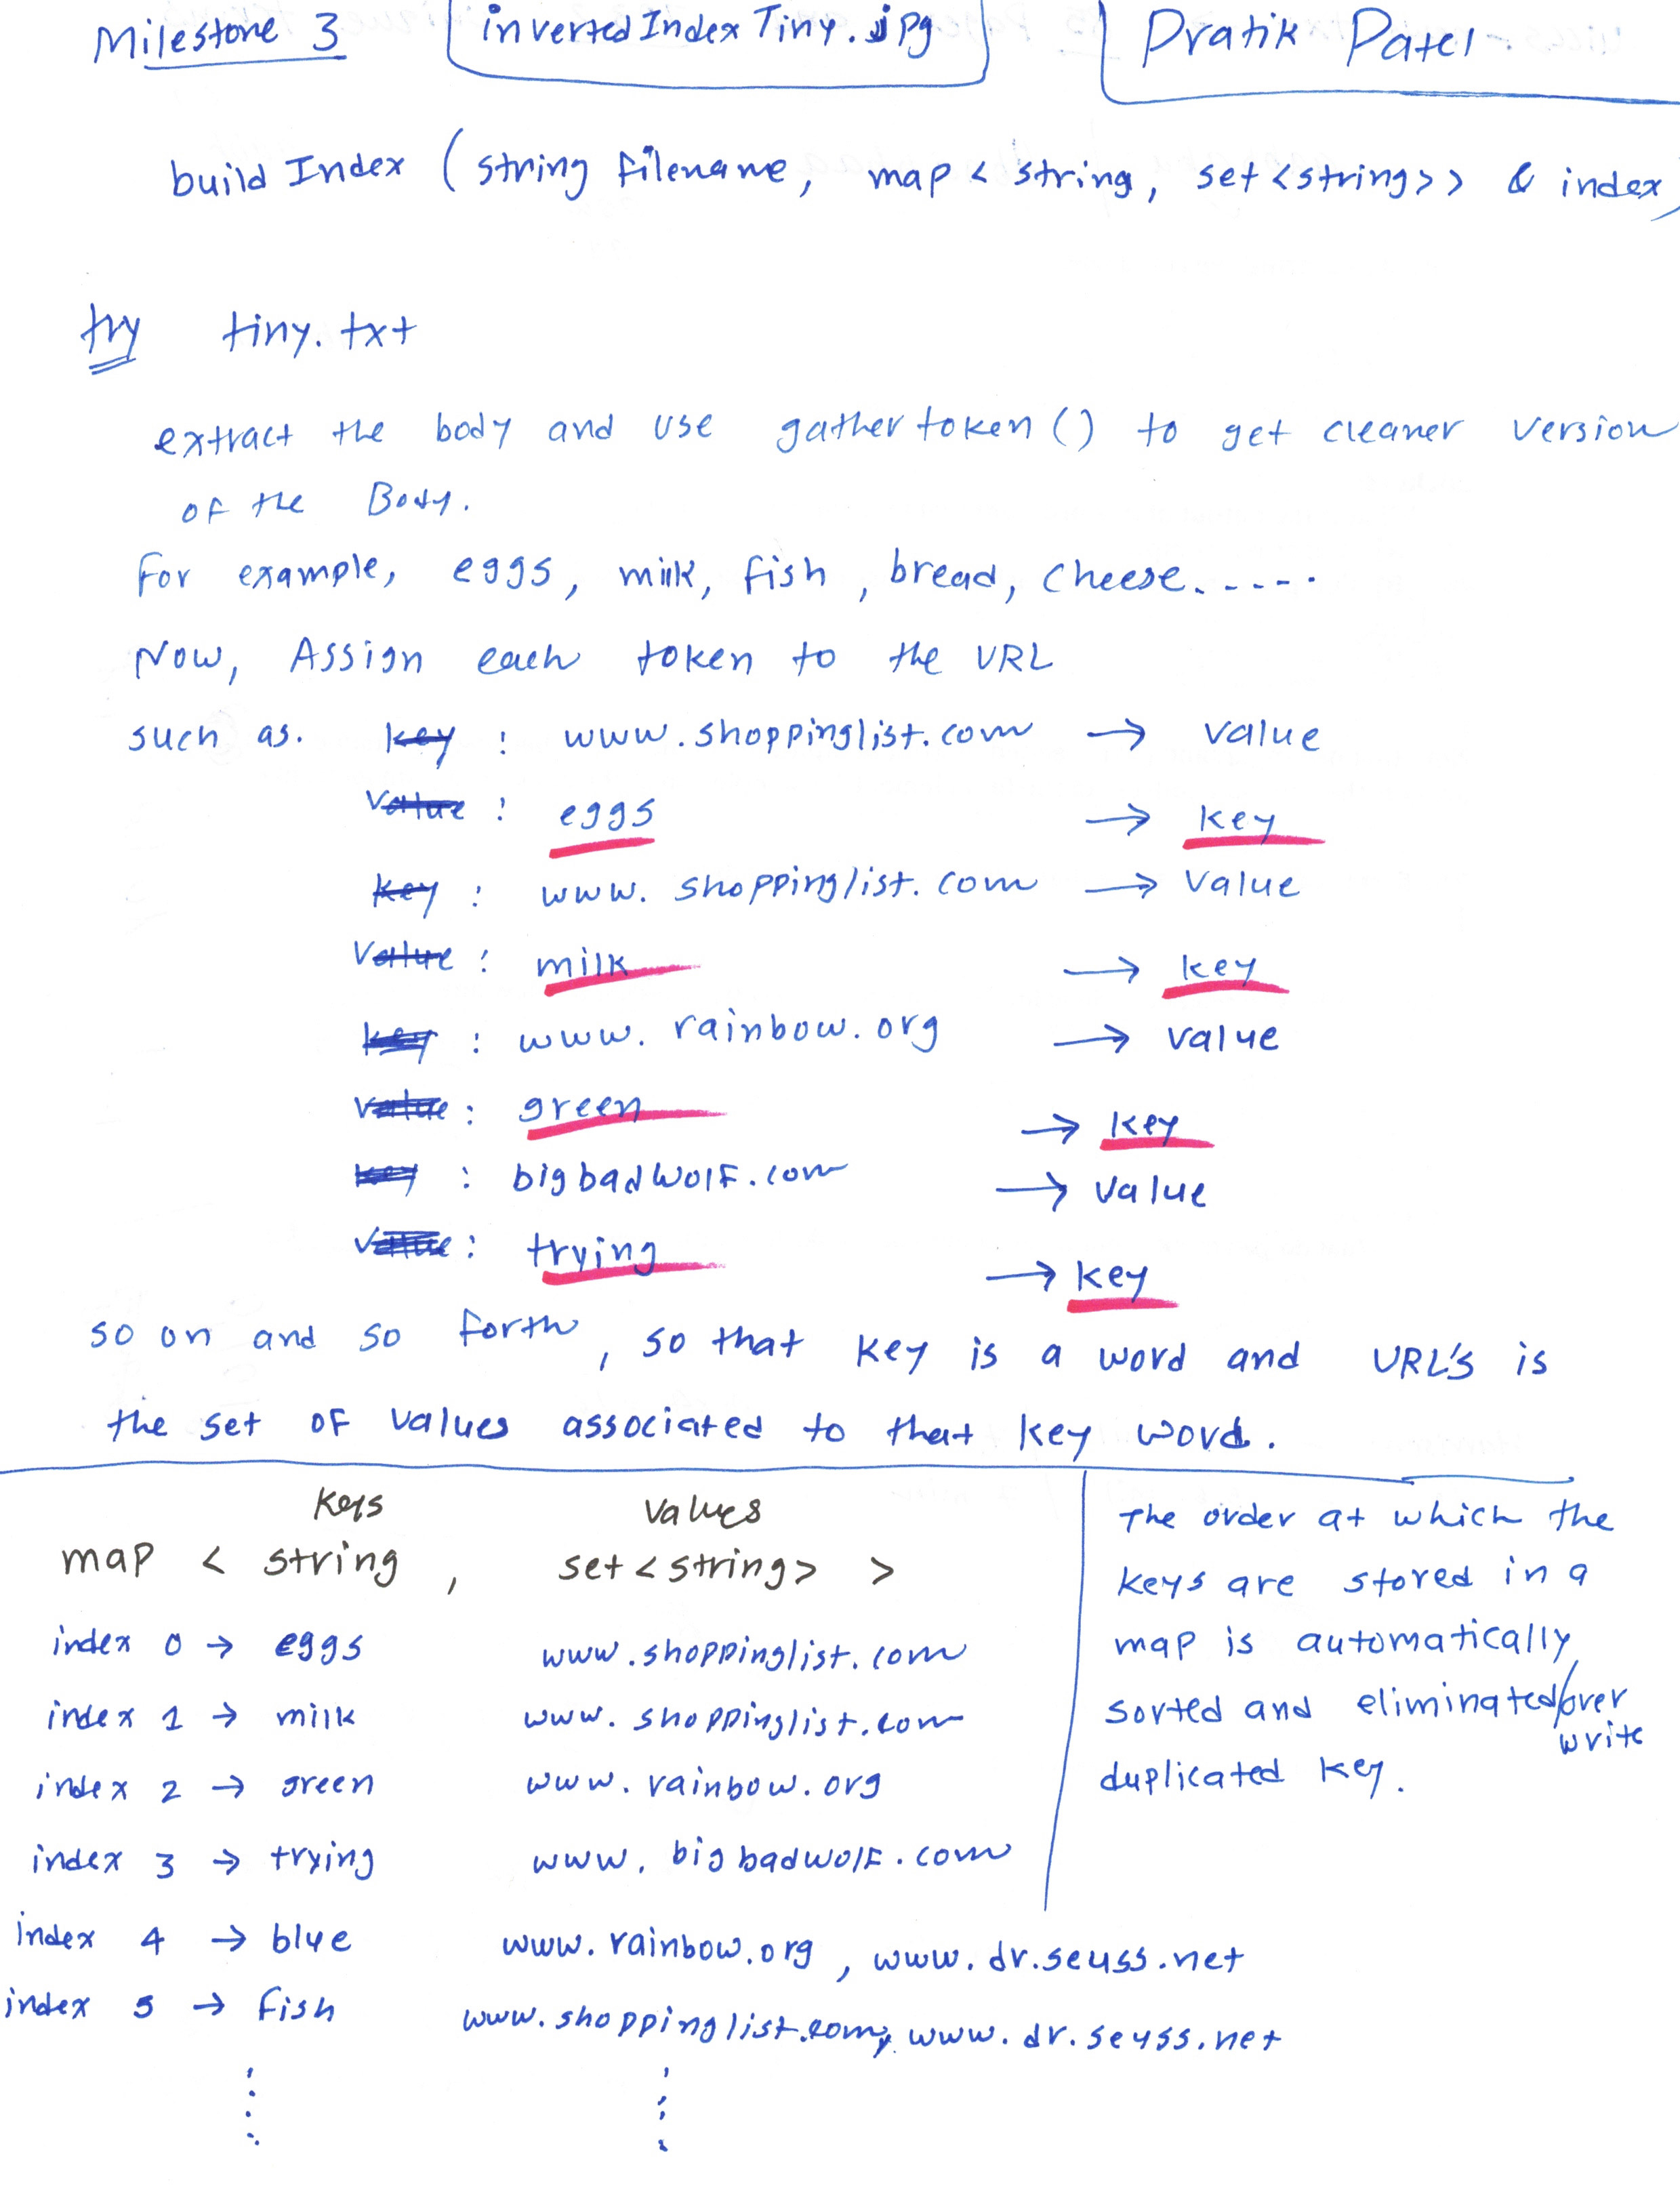 Milestone 3
invertedIndexTiny.jpg
Pratik Patel
build Index (string filename, map < string, set <string>> & index)
try tiny.txt
extract the body and use gathertoken() to get cleaner version
of the Body.
For example, eggs, milk, fish, bread, cheese.....
Now, Assign each token to the URL
such as. key : www.shoppinglist.com → value
Value : eggs → key
key : www.shoppinglist.com → value
Value : milk → key
key : www.rainbow.org → value
value : green → key
key : bigbadwolf.com → value
value : trying → key
so on and so forth, so that key is a word and URL's is
the set of values associated to that key word.
Keys Values
map < string, set <string> >
index 0 → eggs www.shoppinglist.com
index 1 → milk www.shoppinglist.com
index 2 → green www.rainbow.org
index 3 → trying www.bigbadwolf.com
index 4 → blue www.rainbow.org, www.dr.seuss.net
index 5 → fish www.shoppinglist.com, www.dr.seuss.net
The order at which the
keys are stored in a
map is automatically
sorted and eliminated/over
write
duplicated key.